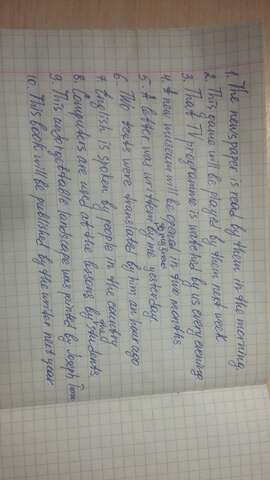 1. The newspaper is read by them in the morning
2. This game will be played by them next week
3. That TV programme is watched by us every evening
4. A new museum will be opened in two months
5. A letter was written by me yesterday.
6. The texts were translated by him an hour ago
7. English is spoken by people in the country
8. Computers are used at the lessons by the students
9. This unforgettable landscape was painted by Joseph
10. This book will be published by the writer next year